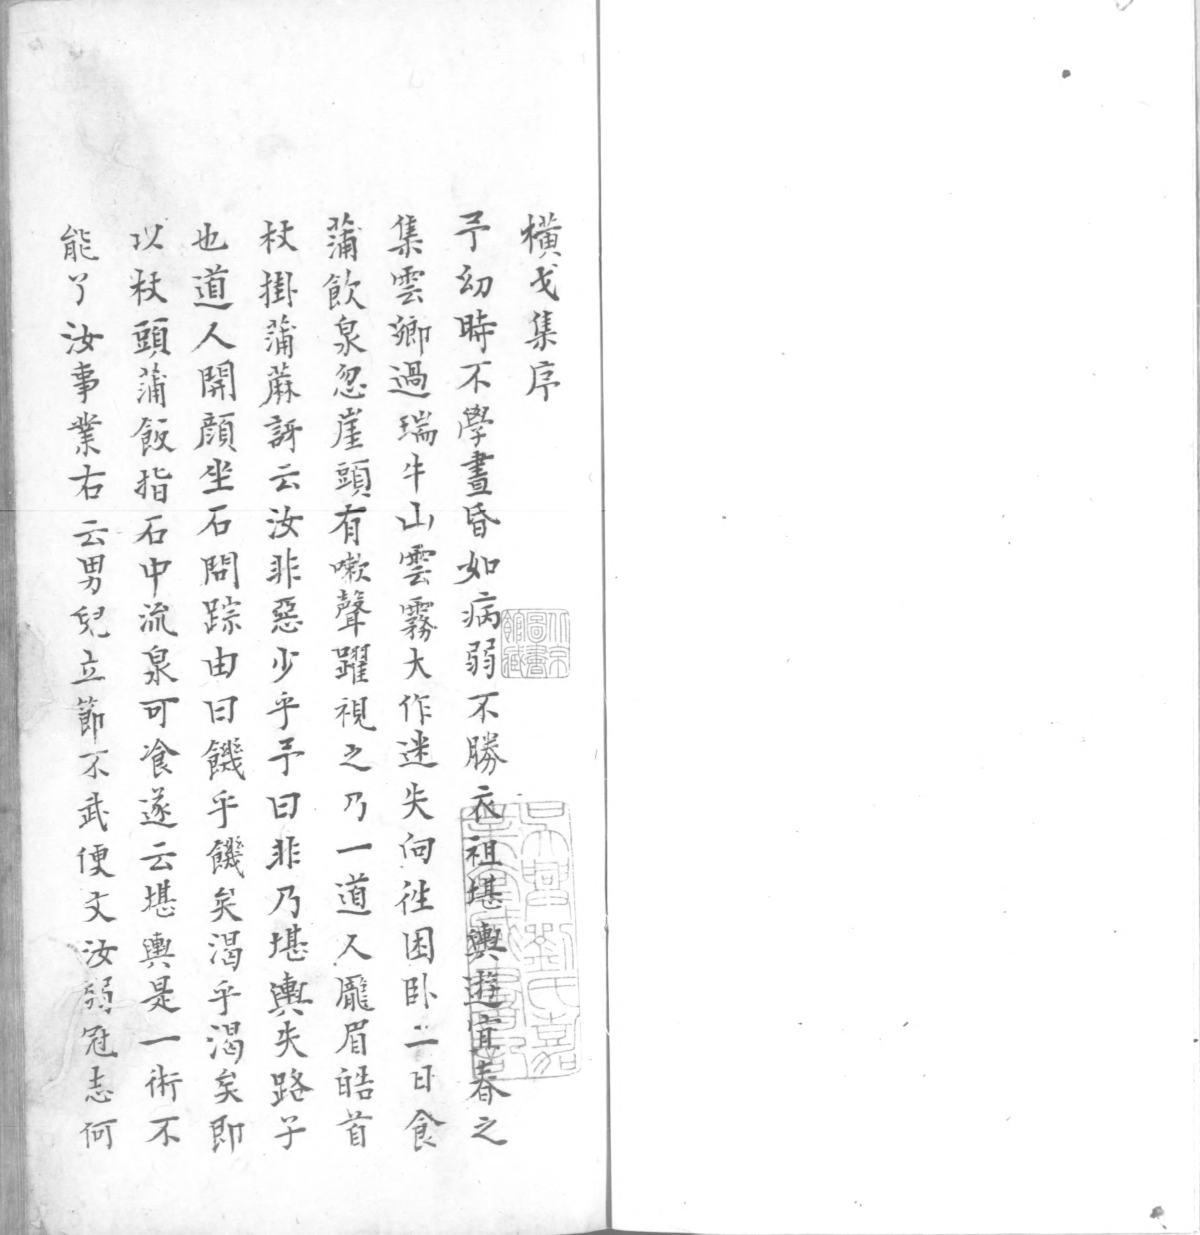 橫戈集序
予幼時不學晝昏如病弱不勝衣祖堪輿遊宜春之
集雲卿過瑞牛山雲霧大作迷失向徃困卧二日食
蒲飲泉忽崖頭有嗽聲躍視之乃一道人龎眉皓首
杖掛蒲蔴訝云汝非惡少乎予曰非乃堪輿失路子
也道人開顔坐石問踪由曰饑乎饑矣渴乎渴矣即
以杖頭蒲飯指石中流泉可飡遂云堪輿是一術不
能了汝事業右云男兒立節不武便文汝弱冠志何